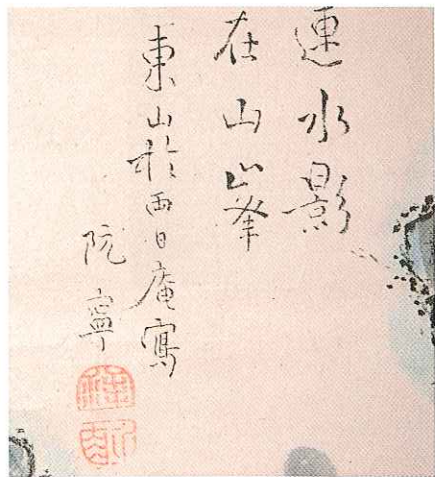 連水影
在山峯
東山於日庵寫
阮寧